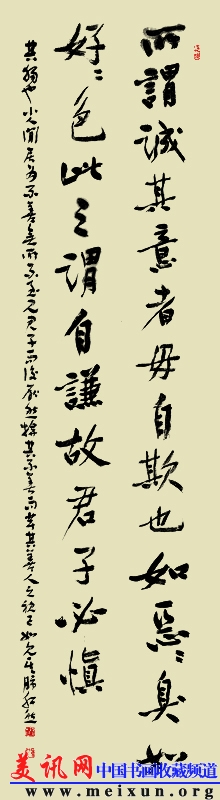 所謂誠其意者毋自欺也如惡〻臭如
好〻色此之謂自謙故君子必慎
其獨也小人閒居為不善無所不至見君子而後厭然揜其不善而著其善人之視己如見其肺肝然
美讯网 中国书画收藏频道
www.meixun.org